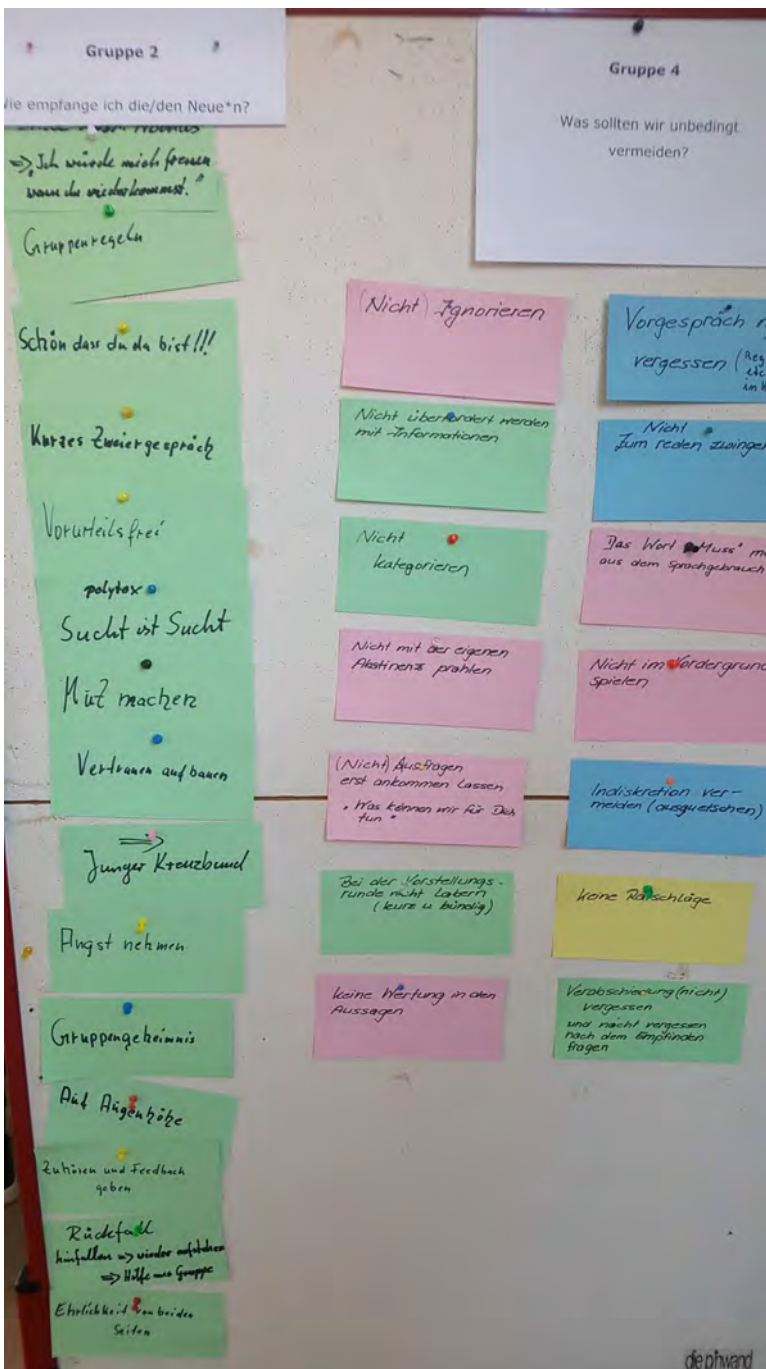 Gruppe 2
Wie empfange ich die/den Neue*n?
⇒ „Ich würde mich freuen
wenn du wiederkommst."
Gruppenregeln
Schön dass du da bist!!!
Kurzes Zweiergespräch
Vorurteilsfrei
polytox
Sucht ist Sucht
Mut machen
Vertrauen aufbauen
⇒
Junger Kreuzbund
Angst nehmen
Gruppengeheimnis
Auf Augenhöhe
Zuhören und Feedback
geben
Rückfall
hinfallen ⇒ wieder aufstehen
⇒ Hilfe aus Gruppe
Ehrlichkeit von beiden
Seiten
Gruppe 4
Was sollten wir unbedingt
vermeiden?
(Nicht) Ignorieren
Nicht überfordert werden
mit Informationen
Nicht
kategorieren
Nicht mit der eigenen
Abstinenz prahlen
(Nicht) Ausfragen
erst ankommen lassen
„Was können wir für Dich
tun"
Bei der Vorstellungs-
runde nicht Labern
(kurz u bündig)
keine Wertung in den
Aussagen
Vorgespräch
vergessen (
Nicht
Zum reden zwingen
Das Wort „Muss"
aus dem Sprachgebrauch
Nicht im Vordergrund
spielen
Indiskretion ver-
meiden (ausquetschen)
keine Ratschläge
Verabschiedung (nicht)
vergessen
und nicht vergessen
nach dem Empfinden
fragen
die pinwand